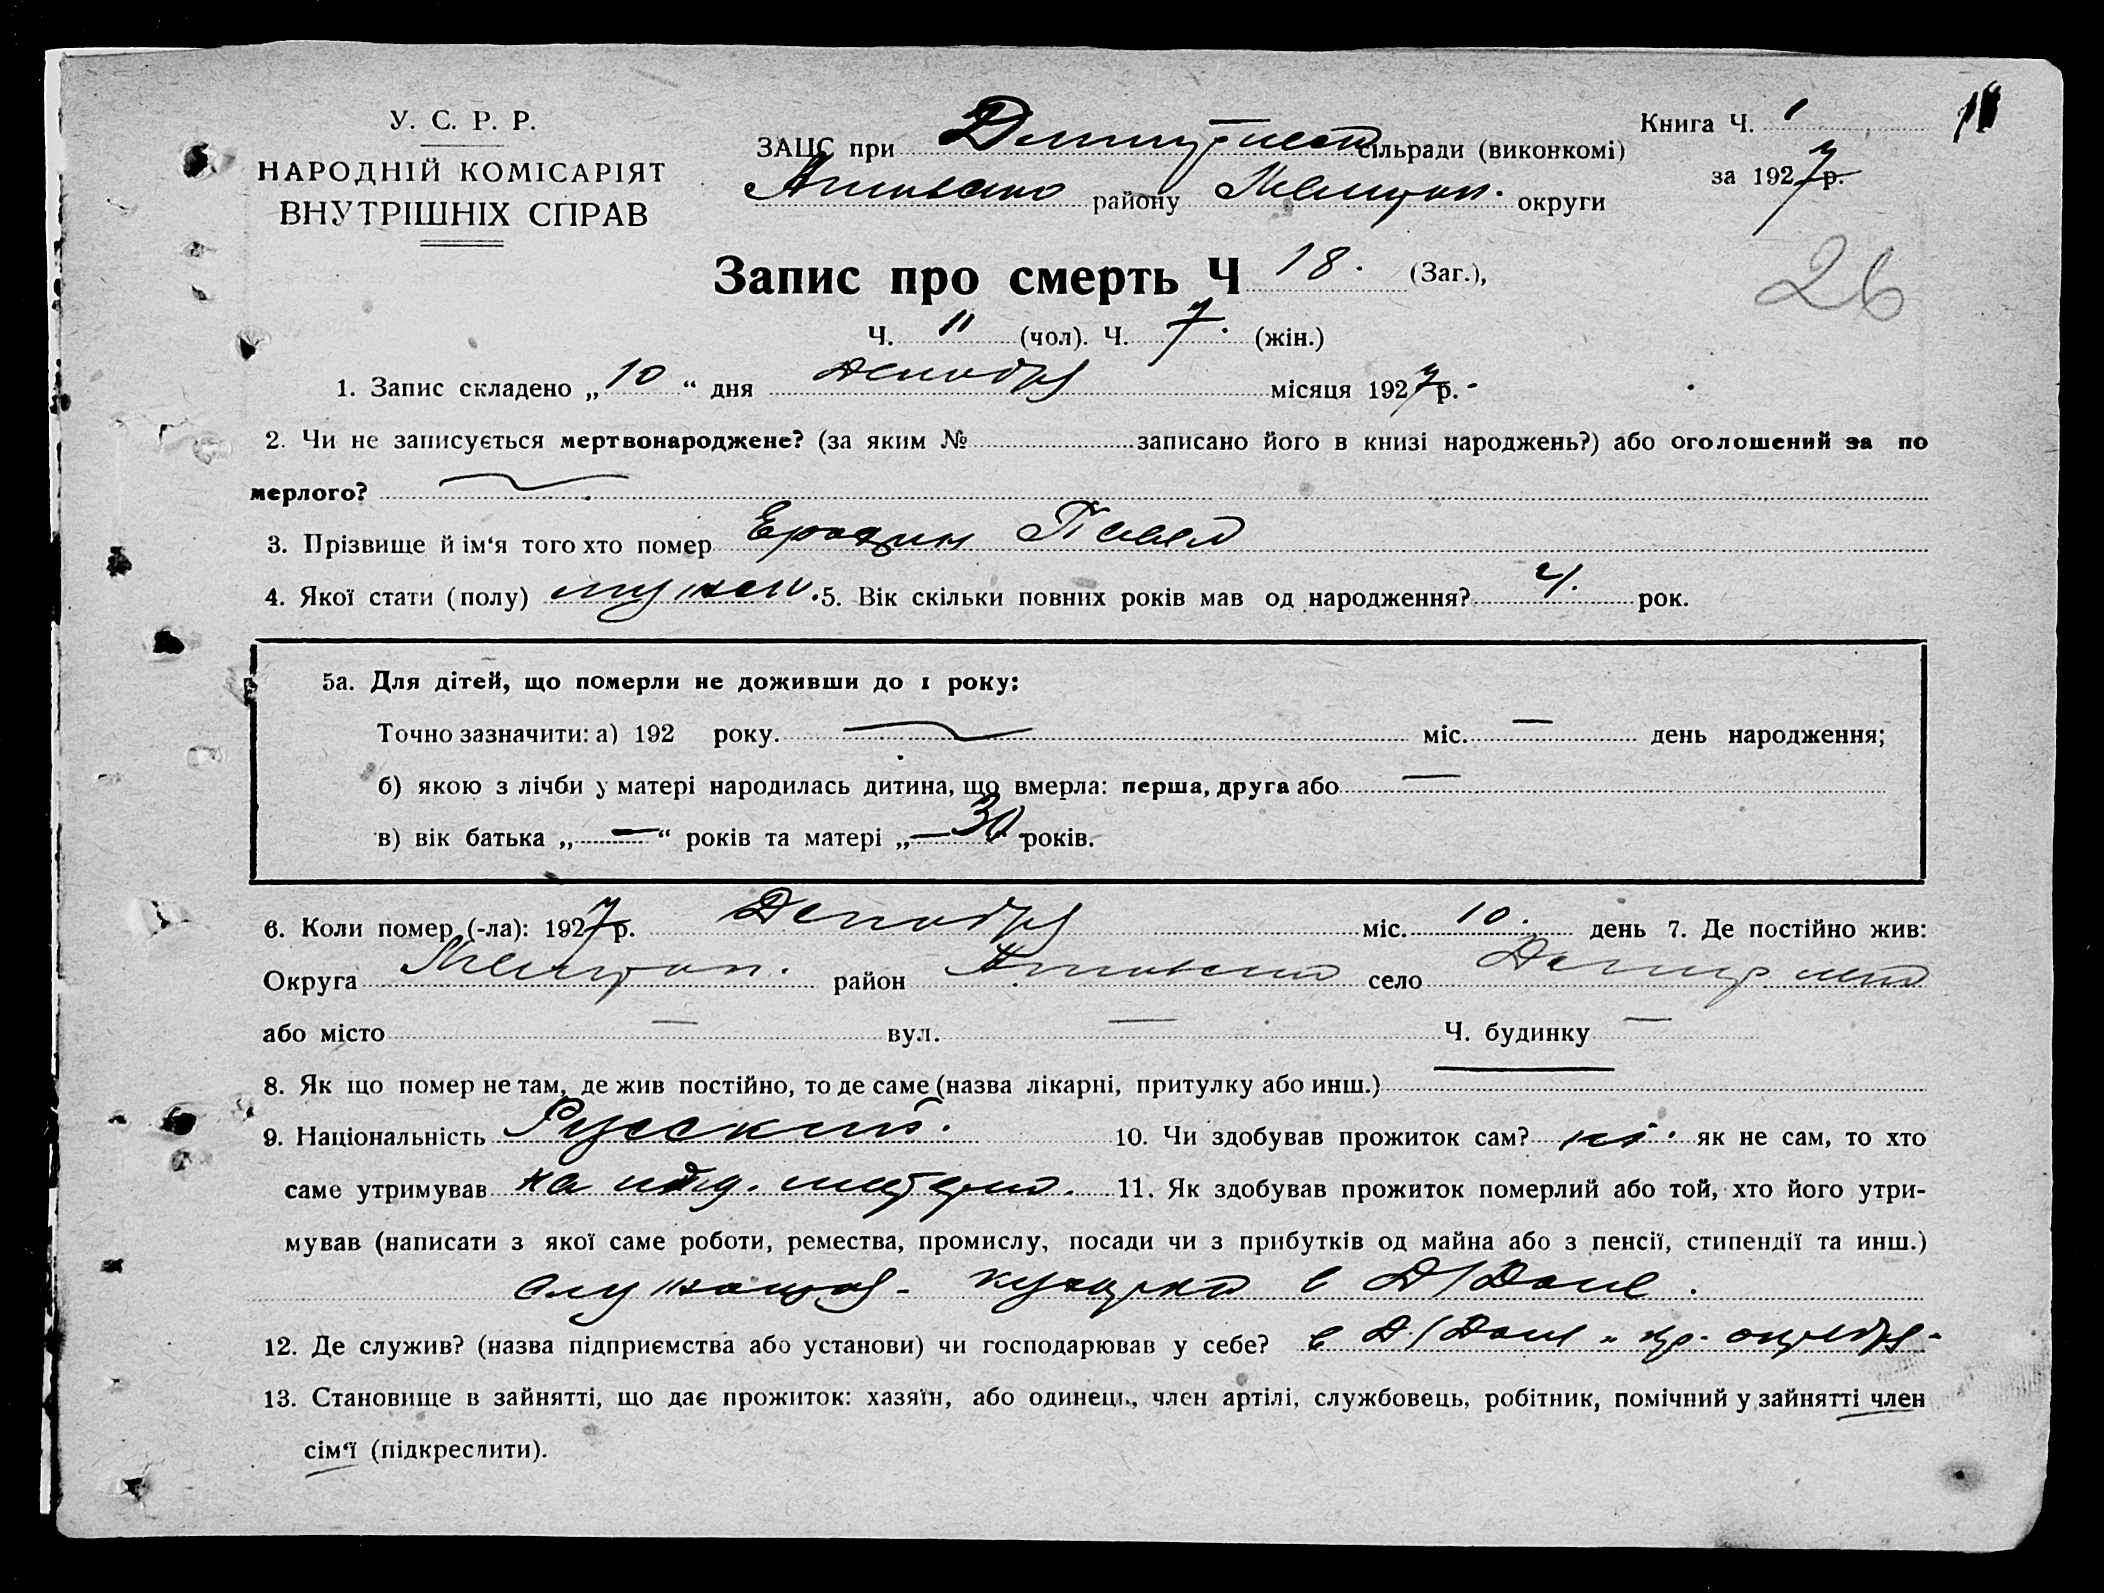 У. С. Р. Р.
НАРОДНІЙ КОМІСАРІЯТ
ВНУТРІШНІХ СПРАВ
ЗАЦС при сільради (виконкомі)
району Мелітоп. округи
Книга Ч. 1
за 1927 р.
11
26
Запис про смерть Ч 18. (Заг.),
Ч. 11 (чол). Ч. 7. (жін.)
1. Запис складено „ 10 “ дня Декабря місяця 1927 р. -
2. Чи не записується мертвонароджене? (за яким № записано його в книзі народжень?) або оголошений за по
мерлого?
3. Прізвище й ім‘я того хто помер Павел
4. Якої стати (полу) мужск. 5. Вік скільки повних років мав од народження? 4. рок.
5а. Для дітей, що померли не доживши до 1 року:
Точно зазначити: а) 192 року. міс. — день народження;
б) якою з лічби у матері народилась дитина, що вмерла: перша, друга або —
в) вік батька „ — “ років та матері „ — 30 років.
6. Коли помер (-ла): 1927 р. Декабря міс. 10. день 7. Де постійно жив:
Округа Мелітоп. район село
або місто — вул. — Ч. будинку —
8. Як що помер не там, де жив постійно, то де саме (назва лікарні, притулку або инш.) —
9. Національність Русский. 10. Чи здобував прожиток сам? ні. як не сам, то хто
саме утримував на ижд. матери. 11. Як здобував прожиток померлий або той, хто його утри-
мував (написати з якої саме роботи, ремества, промислу, посади чи з прибутків од майна або з пенсії, стипендії та инш.)
служащая - в Д/Доме.
12. Де служив? (назва підприємства або установи) чи господарював у себе? в Д./Доме
13. Становище в зайнятті, що дає прожиток: хазяїн, або одинець, член артілі, службовець, робітник, помічний у зайнятті член
сім‘ї (підкреслити).